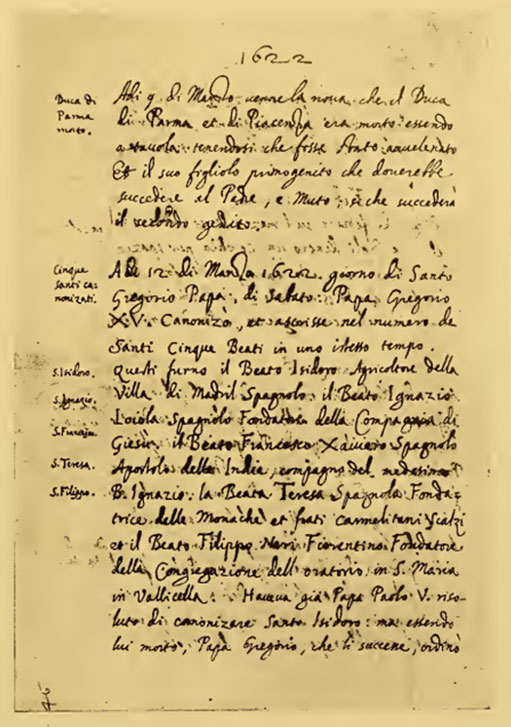 1622
Duca di
Parma
morto.
Adi 9. di Marzo venne la nova che il Duca
di Parma et di Piacenza era morto essendo
a tavola: tenendosi che fosse stato avvelenato
Et il suo figliolo primogenito che doverebbe
succedere al Padre, e Muto: si che succederà
il secondo genito.
Cinque
santi ca-
nonizati.
Adi 12 di Marzo 1622. giorno di Santo
Gregorio Papa, di sabato: Papa Gregorio
X.V. Canonizò, et ascrisse nel numero de
Santi Cinque Beati in uno istesso tempo.
S. Isidoro.
questi furno il Beato Isidoro Agricoltore della
Villa di Madril Spagnolo: il Beato Ignazio
S. Ignazio.
Loiola Spagnolo Fondatore della Compagnia di
S. Francesco
Giesù: il Beato Francesco Xaviero Spagnolo
S. Teresa.
Apostolo della India, compagno del medesimo
S. Filippo.
B. Ignazio: la Beata Teresa Spagnola Fonda-
trice delle Monache et frati carmelitani Scalzi
et il Beato Filippo Neri Fiorentino Fondatore
della Congregazione dell'oratorio in S. Maria
in Vallicella: Haveva già Papa Paolo V. riso-
luto di canonizare Santo Isidoro: ma essendo
lui morto, Papa Gregorio, che li successe, ordinò